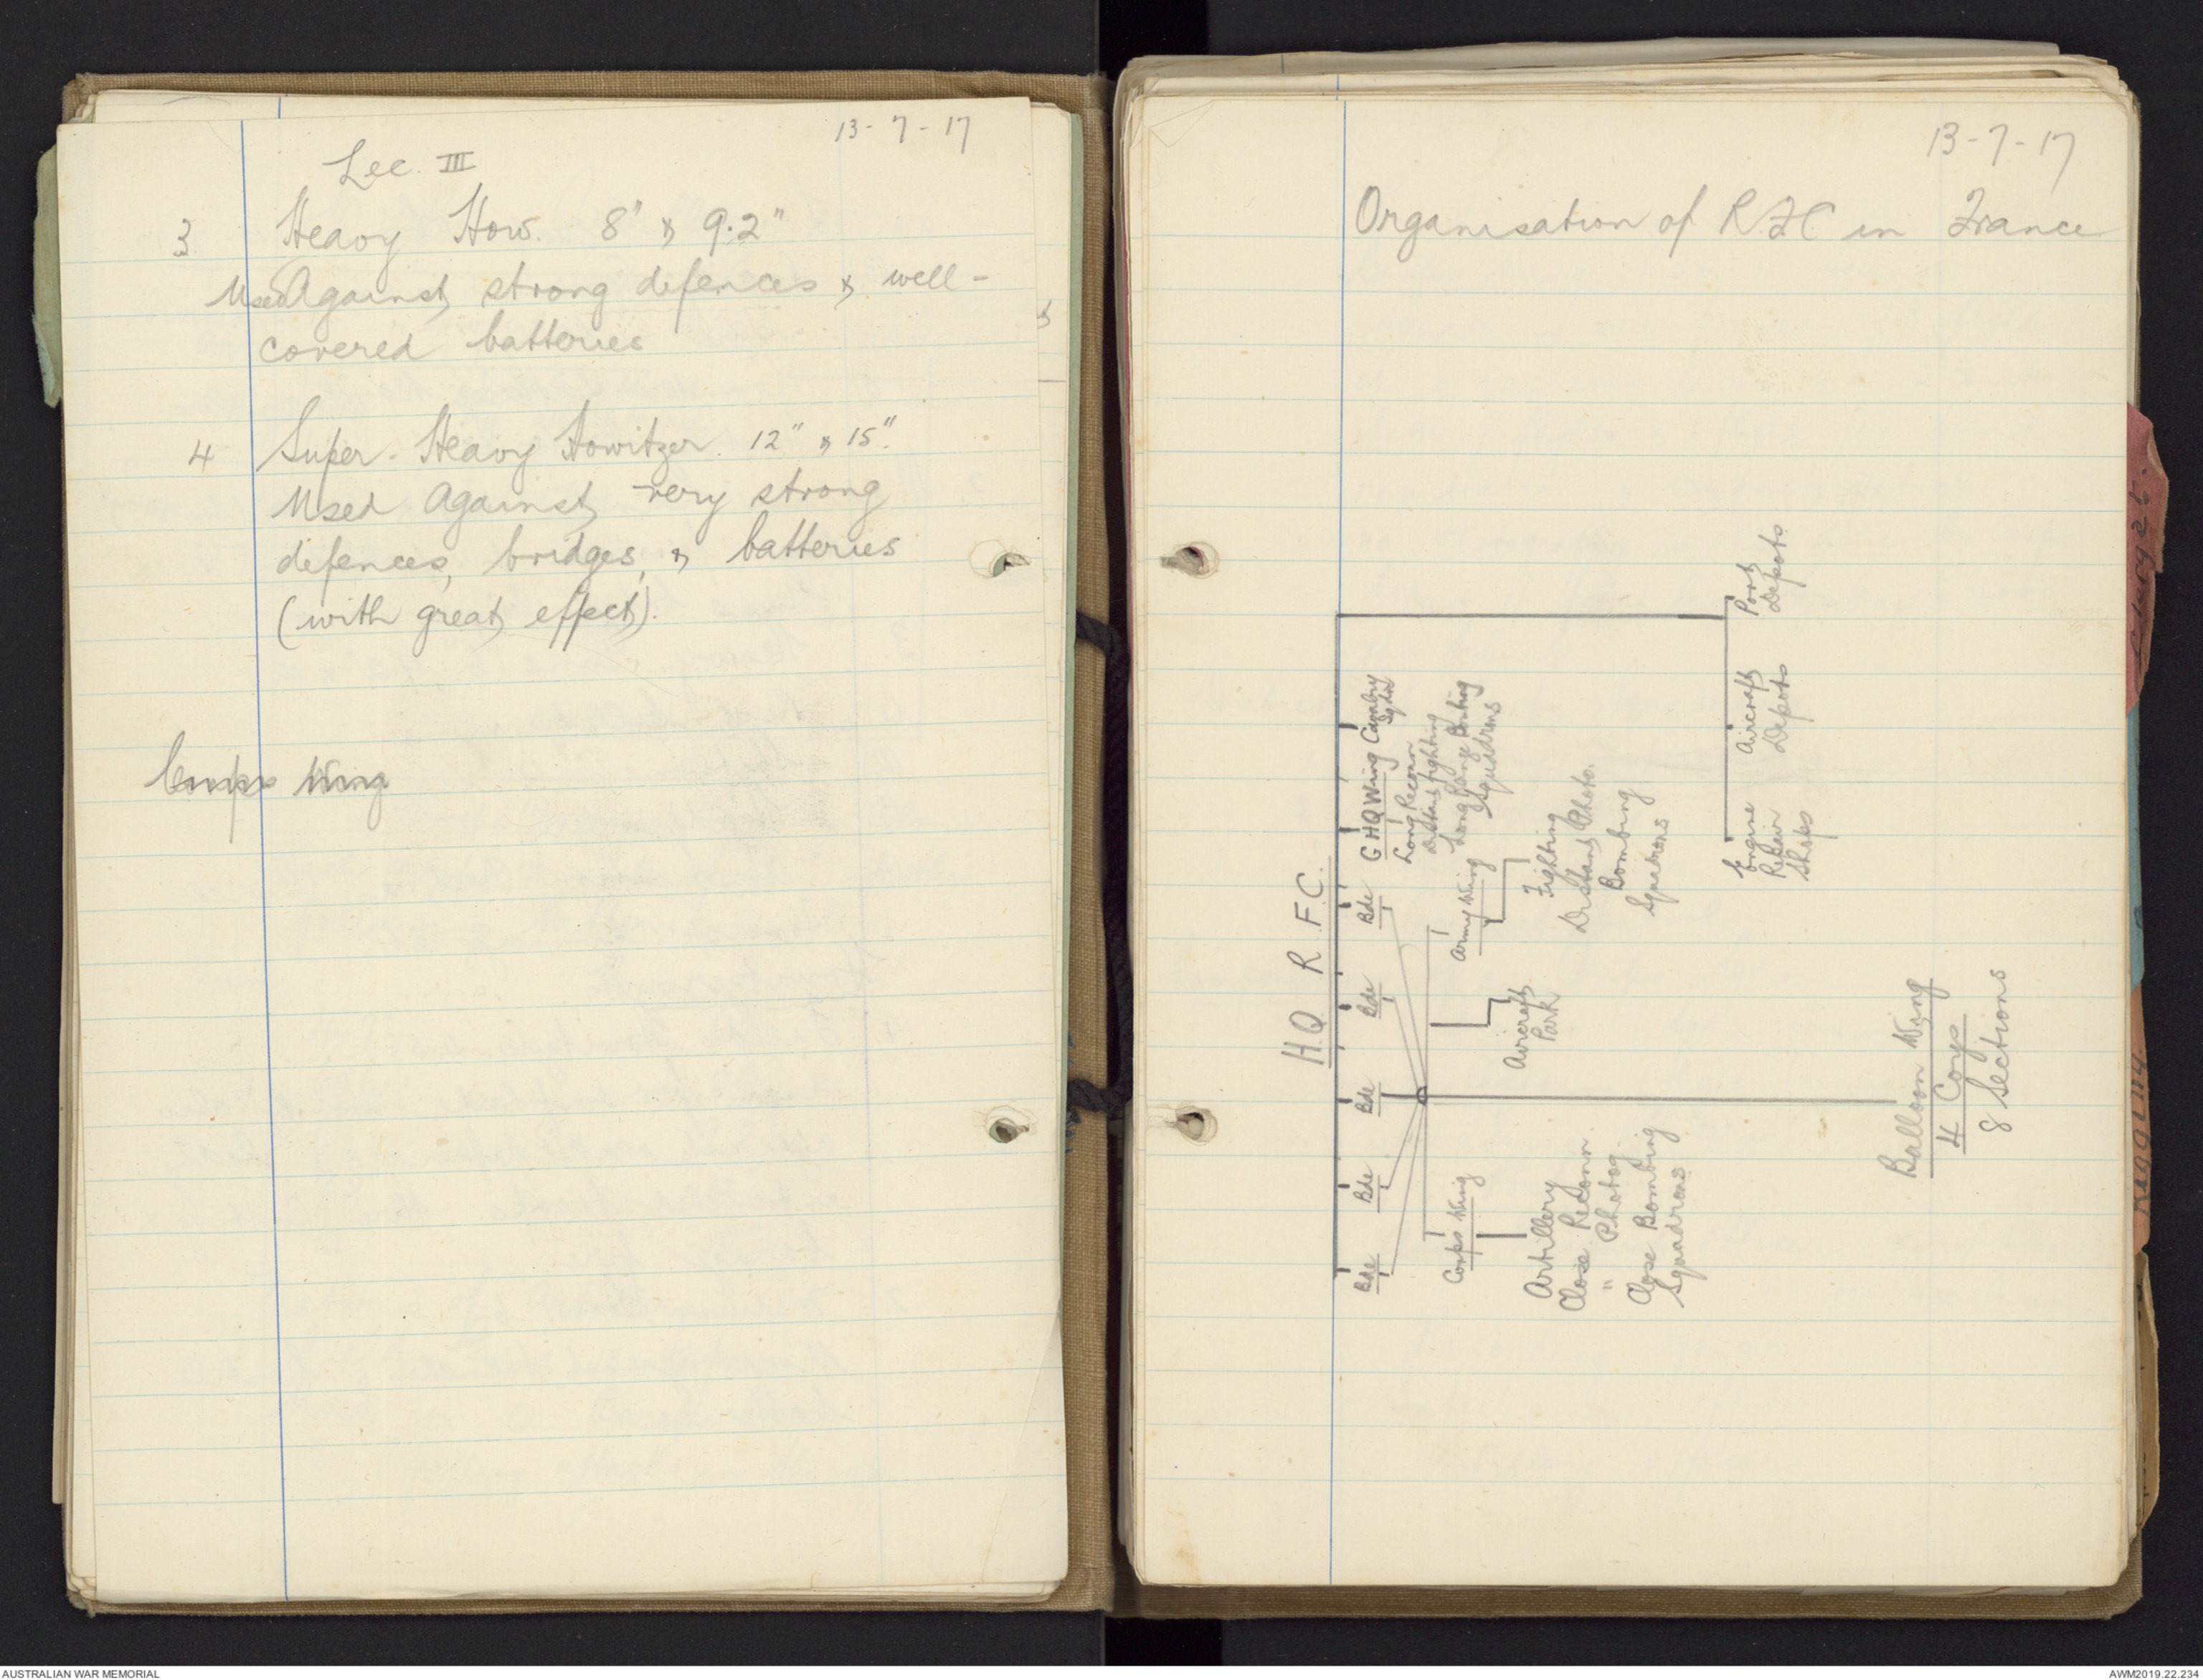 13-7-17
Lec. III
3 Heavy How. 8" & 9.2"
Used Against strong defences & well-
covered batteries
4 Super-Heavy Howitzer. 12" & 15".
Used Against very strong
defences, bridges, & batteries
(with great effect).
Corps Wing
13-7-17
Organisation of RFC in France
H.Q R.F.C.
Bde Bde Bde Bde Bde GHQ Wing Cavalry
Sqdn
Long Reconn
Distant fighting
Long Range Bombing
Squadrons
Corps Wing
Artillery
Close Reconn.
" Photog
Close Bombing
Squadrons
Aircraft
Park
Army Wing
Fighting
Distant Photo.
Bombing
Squadrons
Engine
Repair
Shops
Aircraft
Depots
Port
Depots
Balloon Wing
4 Coys
8 Sections
Rigging
AUSTRALIAN WAR MEMORIAL
AWM2019.22.234